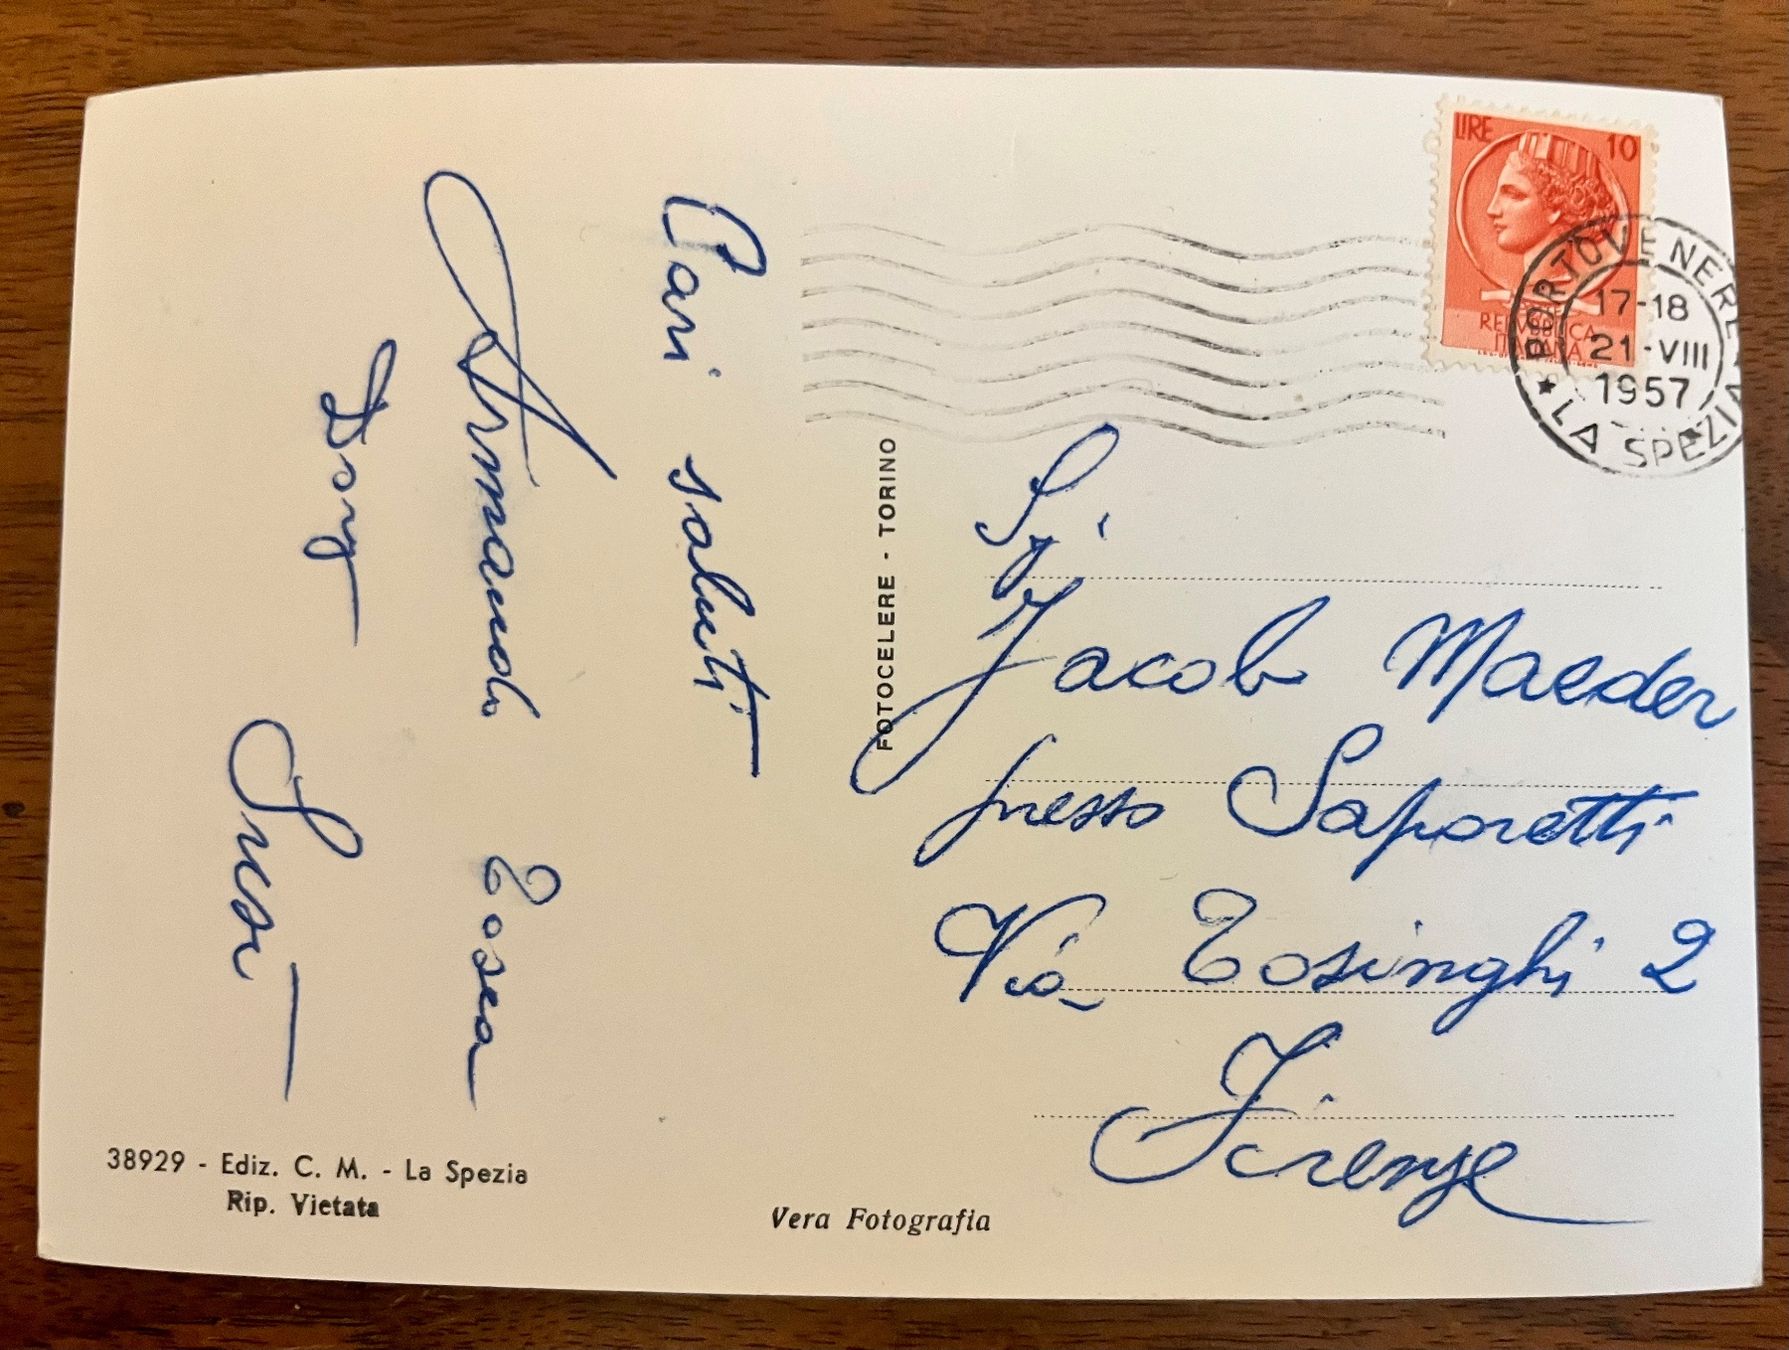 Cari saluti
Armando Tosca
Dory
Susi
38929 - Ediz. C. M. - La Spezia
Rip. Vietata
Vera Fotografia
FOTOCELERE - TORINO
LIRE 10
REPVBBLICA
ITALIANA
PORTOVENERE
17-18
21-VIII
1957
LA SPEZIA
Sig
Jacob Maeder
presso Saporetti
Via Tosinghi 2
Firenze